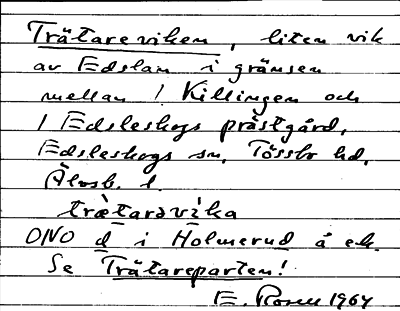 Trätareviken, liten vik
av Edslan i gränsen
mellan 1 Killingen och
1 Edsleskogs prästgård,
Edsleskogs sn, Tössbo hd,
Älvsb. l.
trɛ̀tarəvi̇̀ka
ONO d i Holmerud å ek.
Se Trätareparten!
E. Rosell 1964